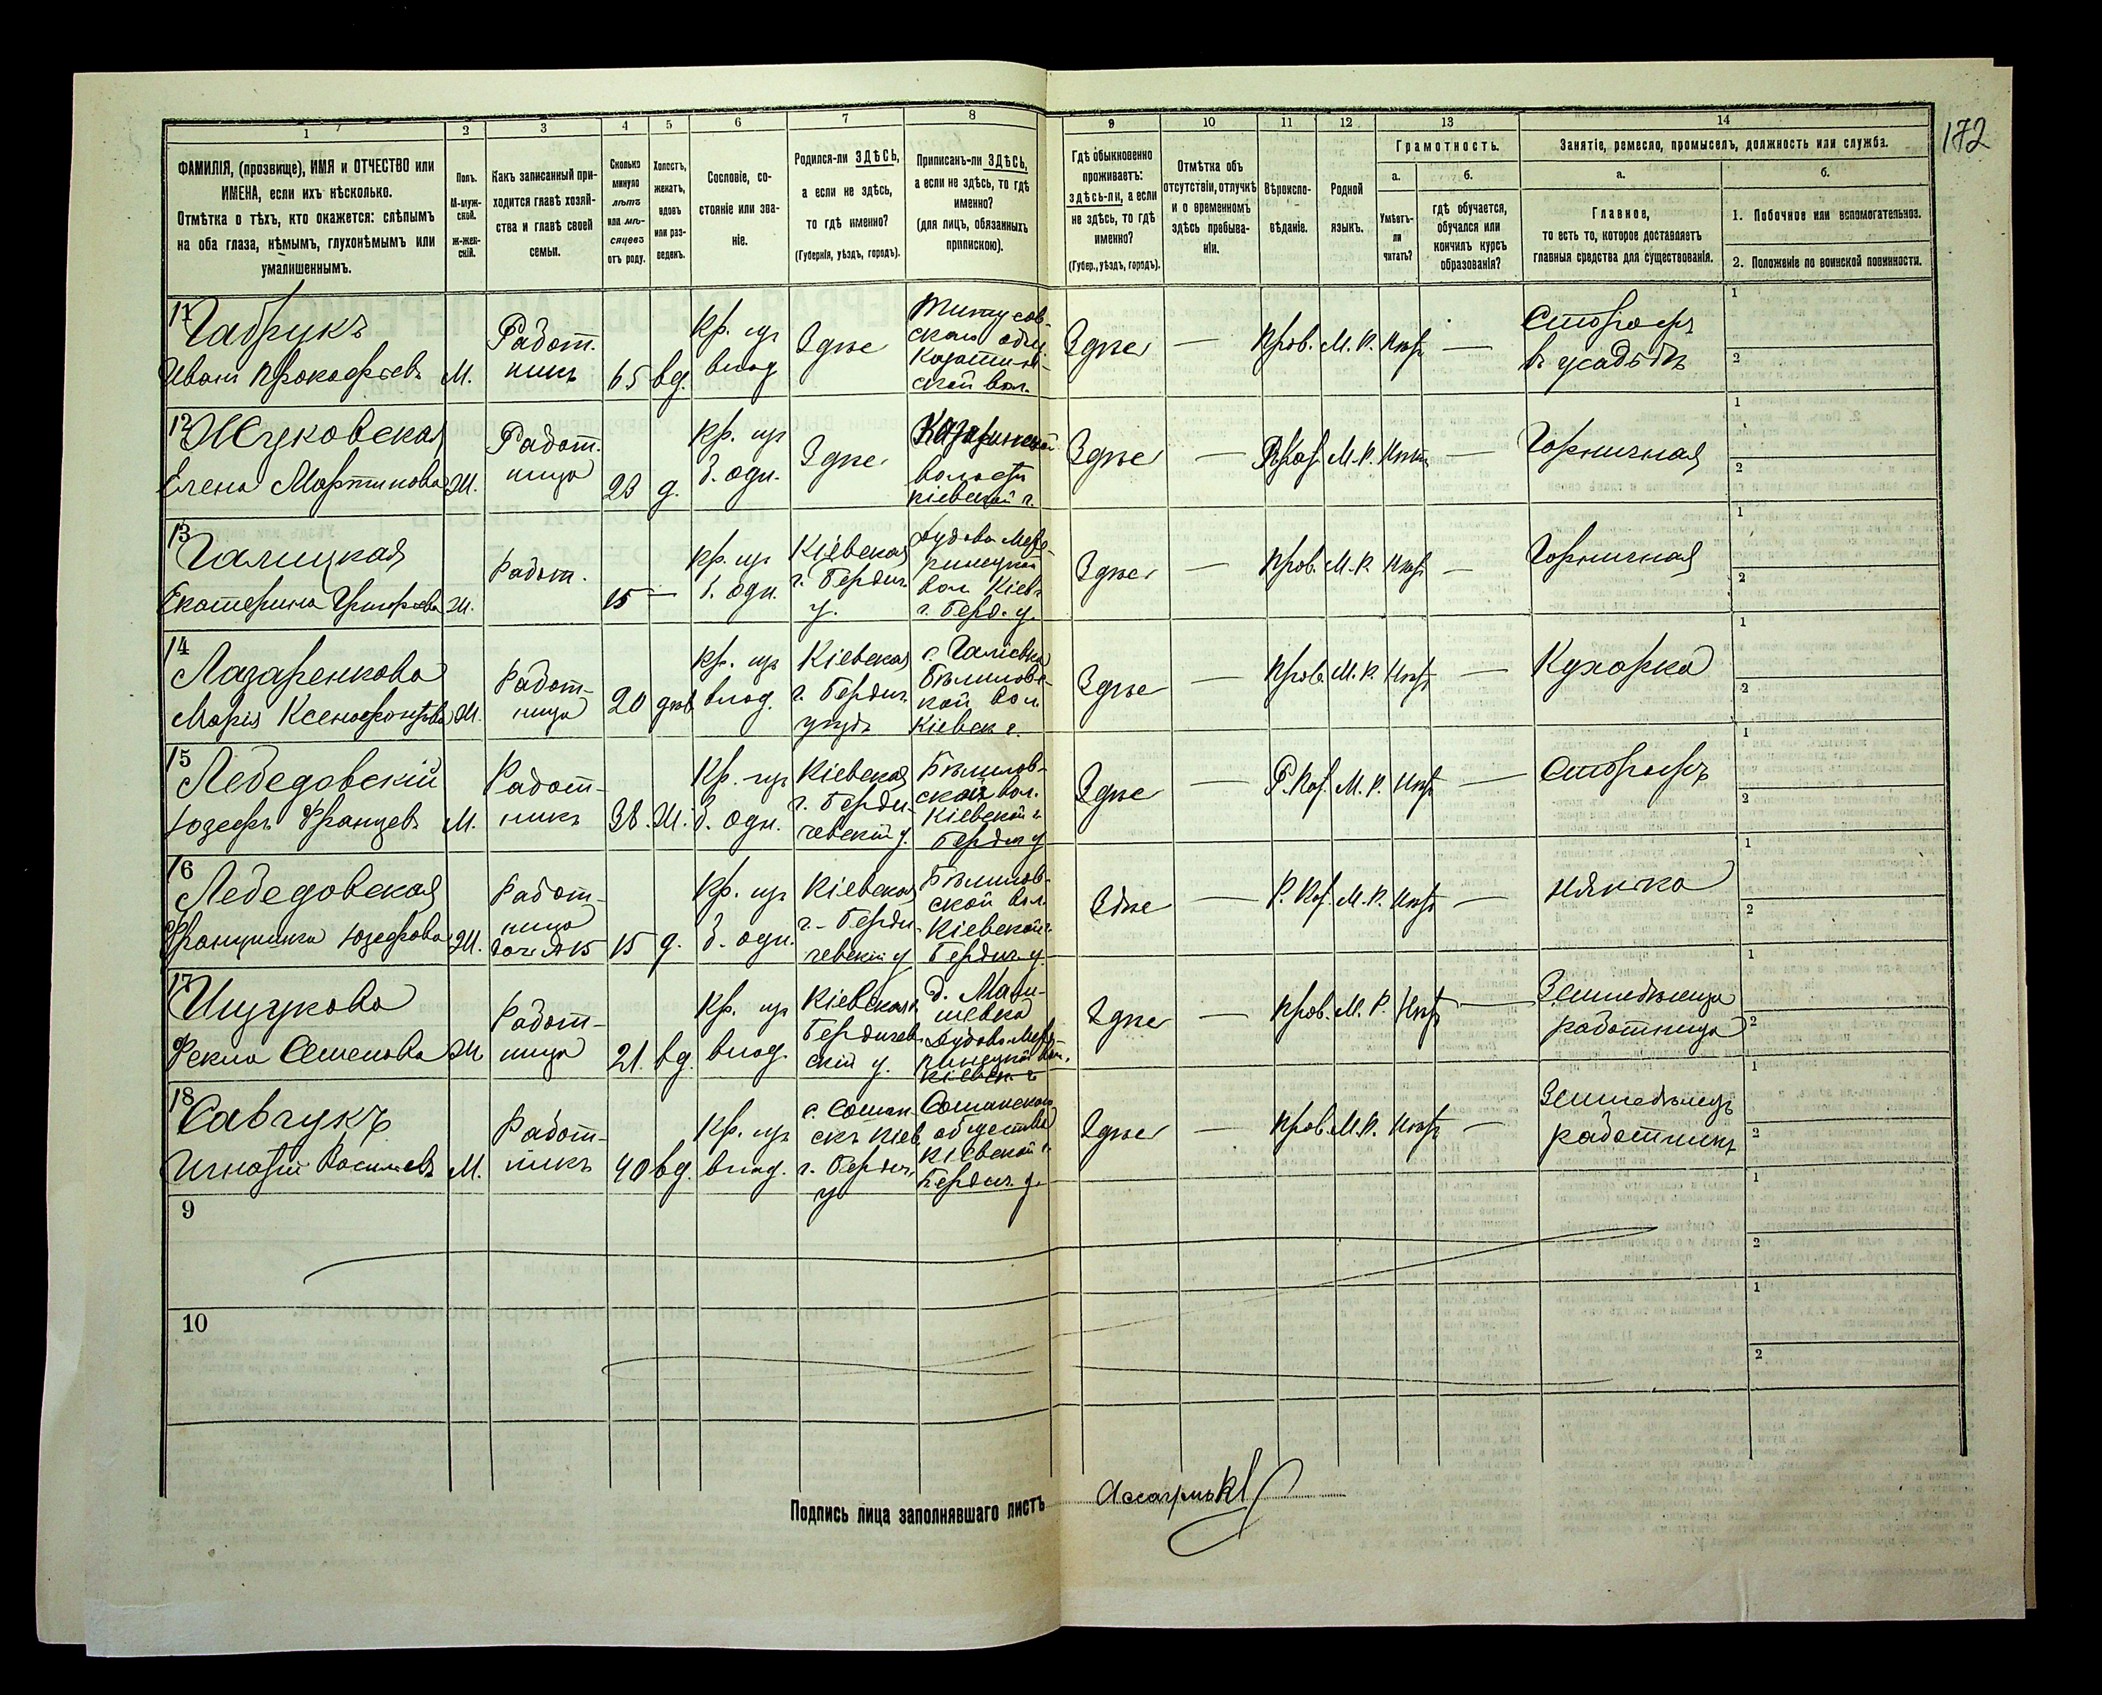 172
1 2 3 4 5 6 7 8 9 10 11 12 13 14
ФАМИЛІЯ, (прозвище), ИМЯ и ОТЧЕСТВО или
ИМЕНА, если ихъ нѣсколько.
Отмѣтка о тѣхъ, кто окажется: слѣпымъ
на оба глаза, нѣмымъ, глухонѣмымъ или
умалишеннымъ.
Полъ.
М-муж-
ской.
ж-жен-
скій.
Какъ записанный при-
ходится главѣ хозяй-
ства и главѣ своей
семьи.
Сколько
минуло
лѣтъ
или мѣ-
сяцевъ
отъ роду.
Холостъ,
женатъ,
вдовъ
или раз-
веденъ.
Сословіе, со-
стояніе или зва-
ніе.
Родился-ли ЗДѢСЬ,
а если не здѣсь,
то гдѣ именно?
(Губернія, уѣздъ, городъ).
Приписанъ-ли ЗДѢСЬ,
а если не здѣсь, то гдѣ
именно?
(для лицъ, обязанныхъ
припискою).
Гдѣ обыкновенно
проживаетъ:
здѣсь-ли, а если
не здѣсь, то гдѣ
именно?
(Губер., уѣздъ, городъ).
Отмѣтка объ
отсутствіи, отлучкѣ
и о временномъ
здѣсь пребыва-
ніи.
Вѣроиспо-
вѣданіе.
Родной
языкъ.
Грамотность.
а.
Умѣетъ-
ли
читать?
б.
гдѣ обучается,
обучался или
кончилъ курсъ
образованія?
Занятіе, ремесло, промыселъ, должность или служба.
а.
Главное,
то есть то, которое доставляетъ
главныя средства для существованія.
б.
1. Побочное или вспомогательное.
2. Положеніе по воинской повинности.
11
Габрукъ
Иванъ Прокофьевъ
М.
Работ-
никъ
65
вд.
Кр. изъ
влад.
Здѣсь
Здѣсь
—
Прав.
М. Р.
Нѣтъ
—
Сторожъ
въ усадьбѣ
1
2
12
Жуковская
Елена Мартинова
Ж.
Работ-
ница
23
д.
Кр. изъ
б. одн.
Здѣсь
волости
Кіевской г.
Здѣсь
—
Р. Каѳ.
М. Р.
Нѣтъ
—
Горничная
1
2
13
Галицкая
Екатерина Григорьева
Ж.
Работ.
15
—
Кр. изъ
б. одн.
Кіевская
г. Бердич.
у.
вол. Кіев.
г. Берд. у.
Здѣсь
—
Прав.
М. Р.
Нѣтъ
—
Горничная
1
2
14
Лазаренкова
Марія Ксенофонтова
Ж.
Работ-
ница
20
дѣв.
Кр. изъ
влад.
Кіевская
г. Бердич.
уѣздъ
с. Галіевка
Бѣлиловс-
кой вол.
Кіевск. г.
Здѣсь
—
Прав.
М. Р.
Нѣтъ
—
Кухарка
1
2
15
Лебедовскій
Юзефъ Францевъ
М.
Работ-
никъ
38.
Ж.
Кр. изъ
б. одн.
Кіевская
г. Берди-
чевскій у.
Бѣлилов-
ской вол.
Кіевской г.
Бердич. у.
Здѣсь
—
Р. Каѳ.
М. Р.
Нѣтъ
—
Сторожъ
1
2
16
Лебедовская
Францишка Юзефова
Ж.
Работ-
ница
дочь №15
15
д.
Кр. изъ
б. одн.
Кіевская
г. Берди-
чевскій у.
Бѣлилов-
ской вол.
Кіевской г.
Бердич. у.
Здѣсь
—
Р. Каѳ.
М. Р.
Нѣтъ
—
нянька
1
2
17
Ищукова
Фекла Семенова
Ж.
Работ-
ница
21.
вд.
Кр. изъ
влад.
Кіевская г.
Бердичев-
скій у.
Кіевск. г.
Здѣсь
—
Прав.
М. Р.
Нѣтъ
—
Земледѣлица
работница
1
2
18
Савчукъ
Игнатій Васильевъ
М.
Работ-
никъ
40
вд.
Кр. изъ
влад.
с. Сошан-
скъ Кіев.
г. Бердич.
у.
Сошанскаго
общества
Кіевской г.
Бердич. у.
Здѣсь
—
Прав.
М. Р.
Нѣтъ
—
Земледѣлецъ
работникъ
1
2
9
1
2
10
1
2
Подпись лица заполнявшаго листъ